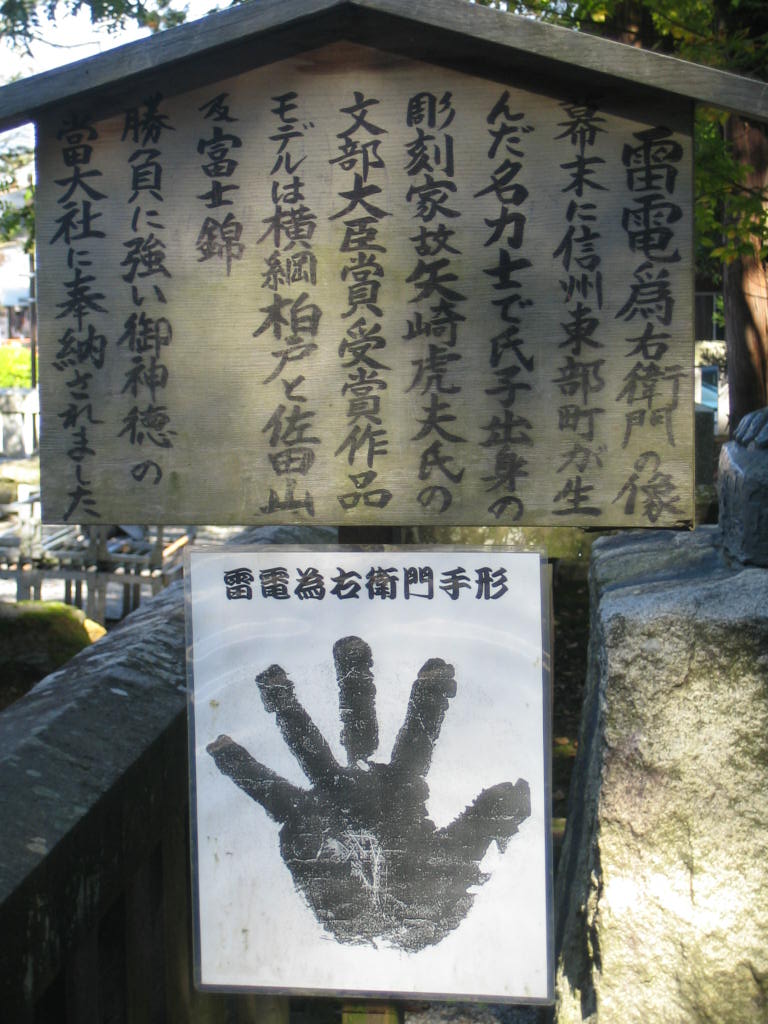 雷電爲右衛門の像
幕末に信州東部町が生
んだ名力士で氏子出身の
彫刻家故矢崎虎夫氏の
文部大臣賞受賞作品
モデルは横綱柏戸と佐田山
及富士錦
勝負に強い御神徳の
當大社に奉納されました
雷電為右衛門手形